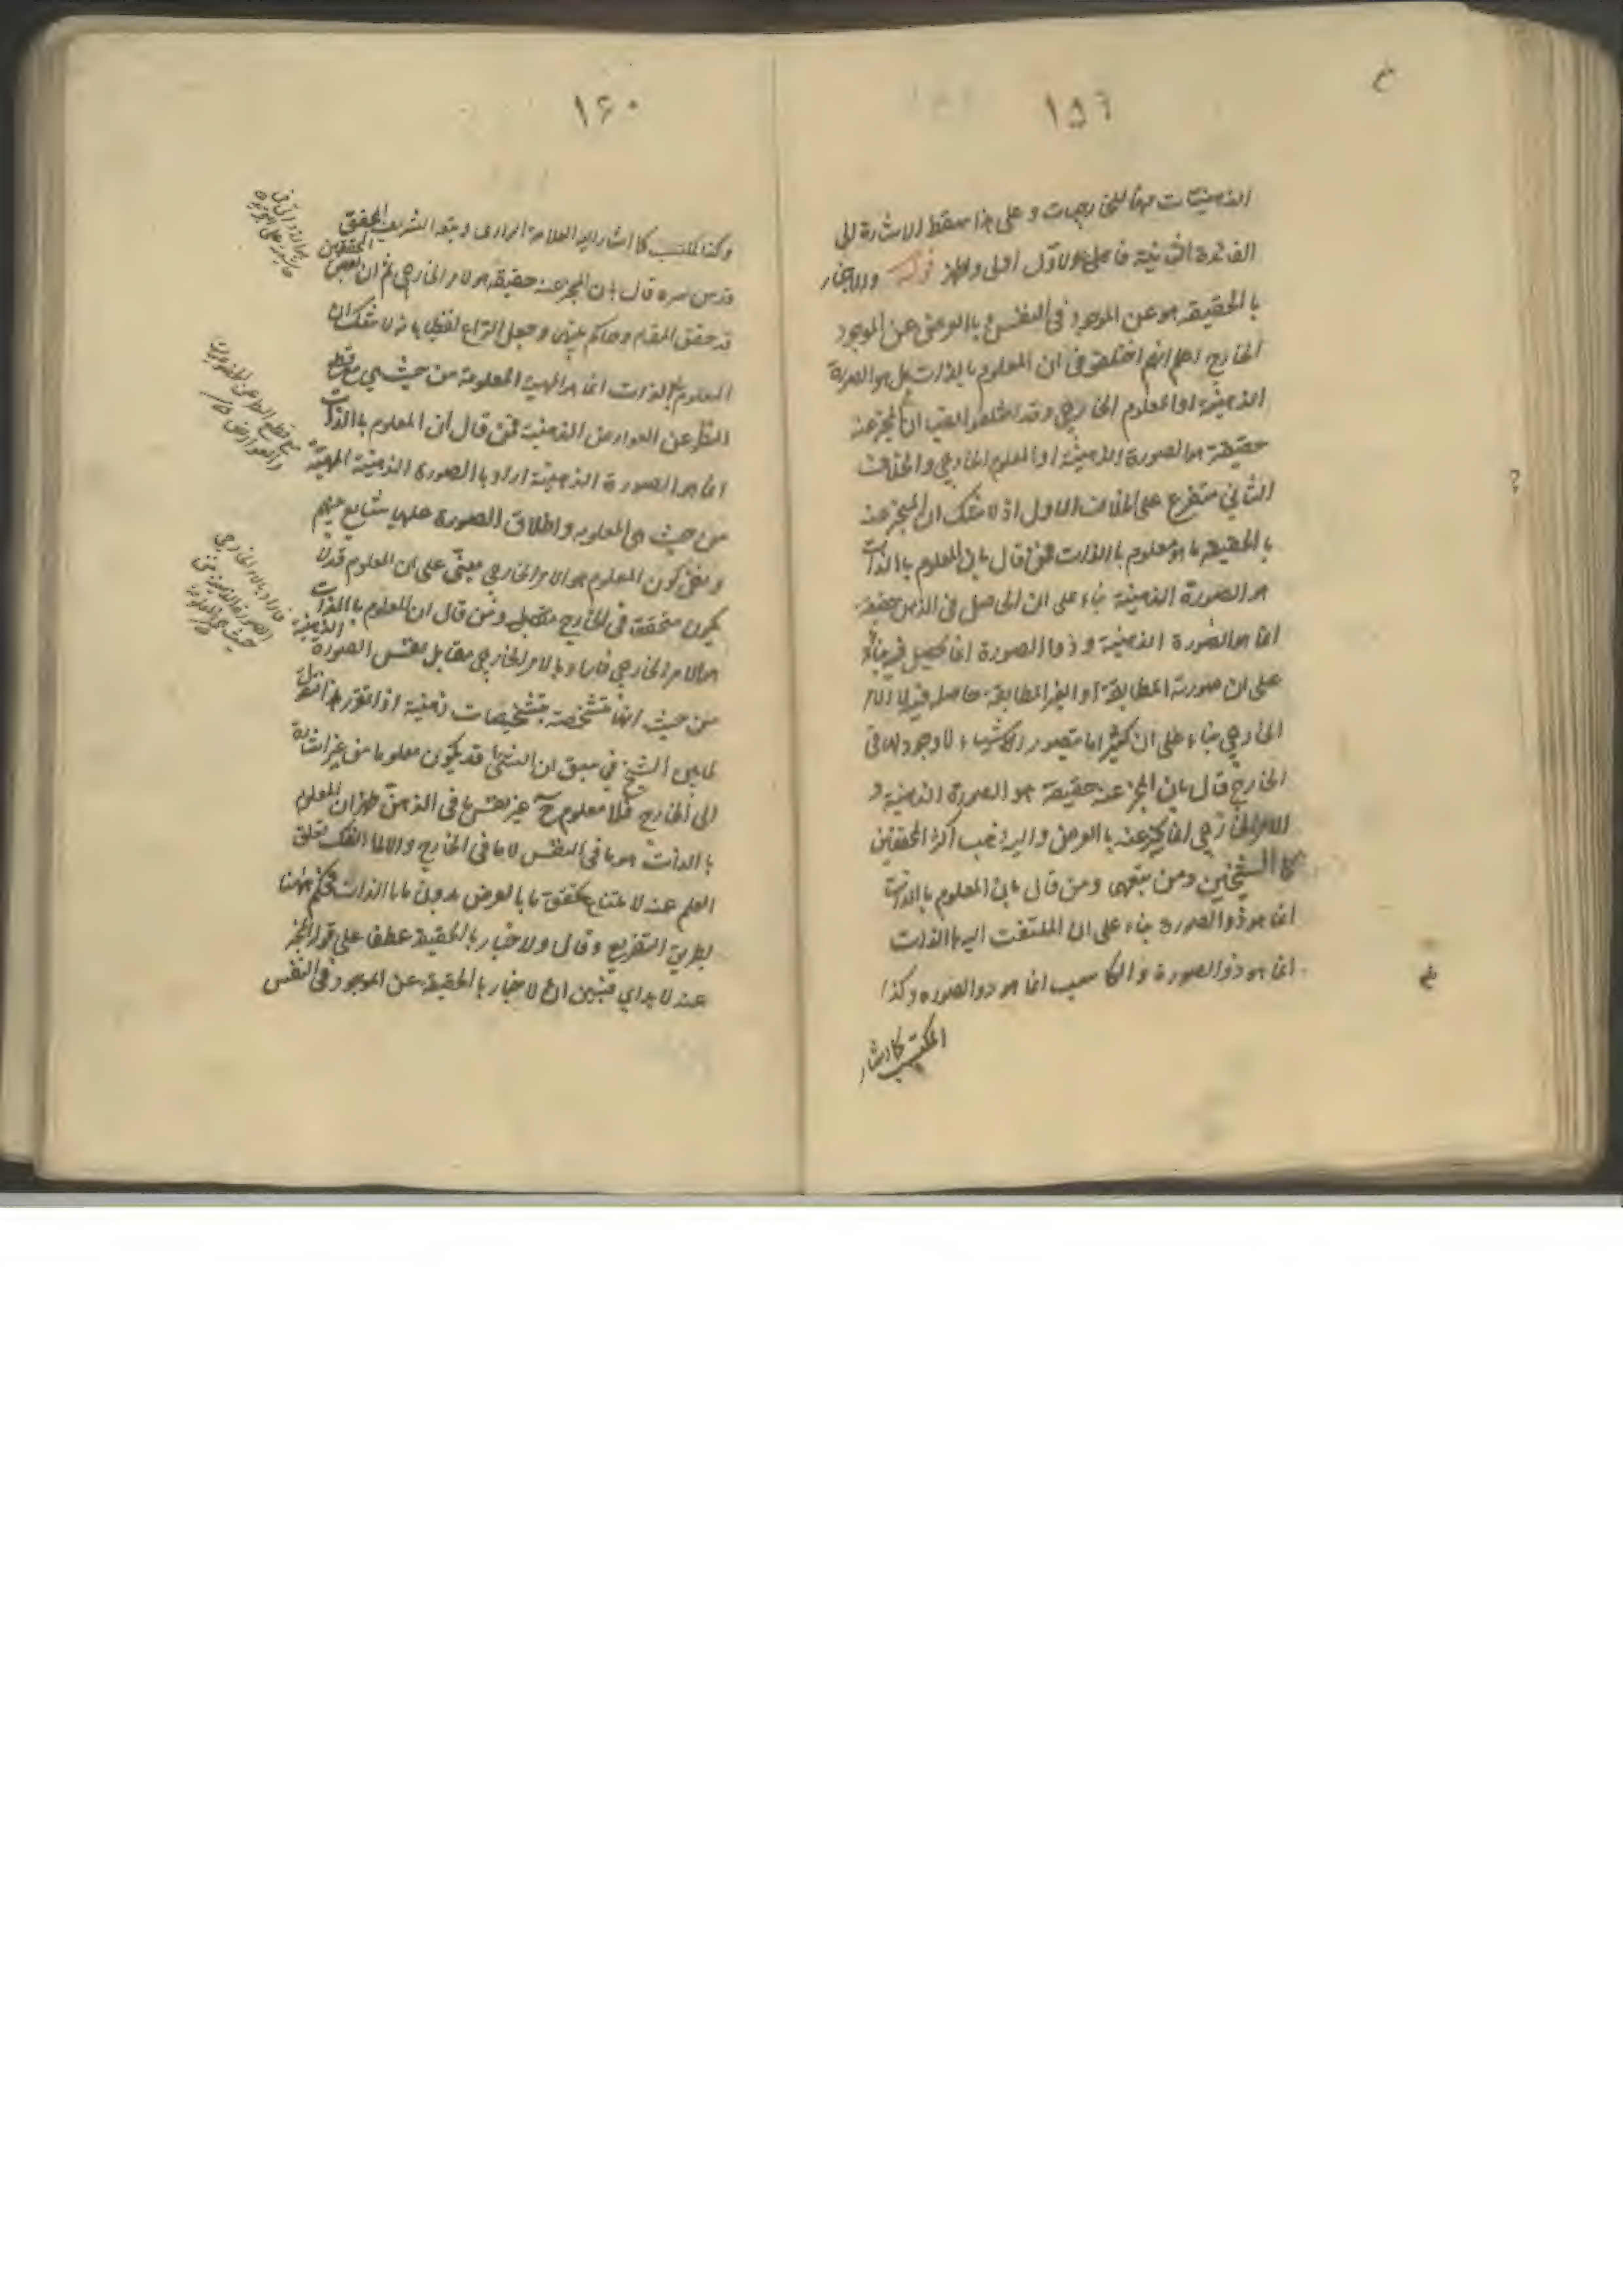 ١٥٦
الذهنيات دون الخارجيات وعلى هذا سقط الاشارة الى
الفائدة الثانية فالحمل على الاول اولى واظهر قوله والاخبار
بالحقيقة هو عن الموجود فى النفس وبالعرض عن الموجود
الخارج اعلم انهم اختلفوا فى ان المعلوم بالذات هل هو الصورة
الذهنية او المعلوم الخارجى وقد اختلفوا ايضا ان المخبر عنه
حقيقة هو الصورة الذهنية او المعلوم الخارجى والخلاف
الثانى متفرع على الخلاف الاول اذ لا شك ان المخبر عنه
بالحقيقة ما هو معلوم بالذات فمن قال بان المعلوم بالذات
هو الصورة الذهنية بناء على ان الحاصل فى الذهن حقيقة
انما هو الصورة الذهنية وذو الصورة انما يحصل فيه بناء
على ان صورته المطابقة او الغير المطابقة حاصل فيه لا الامر
الخارجى بناء على ان كثيرا ما يتصور الاشياء لا وجود لها فى
الخارج قال بان المخبر عنه حقيقة هو الصورة الذهنية و
الامر الخارجى انما يخبر عنه بالعرض واليه ذهب اكثر المحققين
كالشيخين ومن تبعهما ومن قال بان المعلوم بالذات
انما هو ذو الصورة بناء على ان الملتفت اليه بالذات
انما هو ذو الصورة والكاسب انما هو ذو الصورة وكذا
المكتسب كما اشار
١٦٠
وكذا المكتسب كما اشار اليه العلامة الرازى وتبعه الشريف المحقق
قدس سره قال بان المخبر عنه حقيقة هو الامر الخارجى ثم ان بعض المحققين
قد حقق المقام وحاكم بينهن وجعل النزاع لفظيا بانه لا شك ان
المعلوم بالذات انما هو المهية المعلومة من حيث هى مع قطع
النظر عن العوارض الذهنية فمن قال ان المعلوم بالذات
انما هو الصورة الذهنية اراد بالصورة الذهنية المهية
من حيث هى المعلومة واطلاق الصورة عليها شايع منهم
ونفى كون المعلوم هو الامر الخارجى مبنى على ان المعلوم قد لا
يكون متحققة فى الخارج ومن قال ان المعلوم بالذات
هو الامر الخارجى فاراد بالامر الخارجى مقابل نفس الصورة الذهنية
من حيث انها متشخصة بتشخيصات ذهنية اذا تقرر هذا فنقول
لما بين الشيخ فى سبق ان الشئ قد يكون معلوما من غير اشارة
الى الخارج فلا معلوم ح غير نفس ما فى الذهن ظهر ان المعلوم
بالذات هو ما فى النفس لا ما فى الخارج والا لما انفك تعلق
العلم عنه لامتناع تحقق ما بالعرض بدون ما بالذات فحكم ههنا
بطريق التفريع وقال والاخبار بالحقيقة عطفا على قوله المخبر
عنه لا بد اى فتبين ان الاخبار بالحقيقة عن الموجود فى النفس
مع قطع النظر عن
والعوارض
فاراد بالامر الخارجى